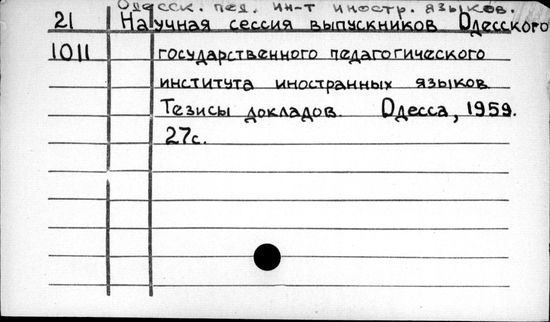 Одесск. пед. ин-т иностр. языков.
21 Научная сессия выпускников Одесского
1011 государственного педагогического
института иностранных языков
Тезисы докладов. Одесса, 1959.
27с.